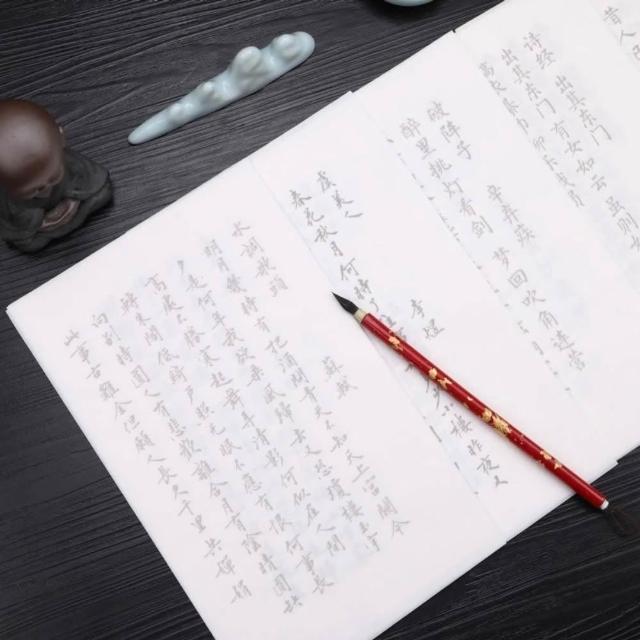 昔人
诗经 出其东门
出其东门 有女如云 虽则
破阵子 辛弃疾
醉里挑灯看剑 梦回吹角连营
虞美人 李煜
春花秋月何时 小楼昨夜又
水调歌头 苏轼
明月几时有 把酒问青天 不知天上宫阙 今
夕是何年 我欲乘风归去 又恐琼楼玉宇
高处不胜寒 起舞弄清影 何似在人间
转朱阁 低绮户 照无眠 不应有恨 何事长
向别时圆 人有悲欢离合 月有阴晴圆缺
此事古难全 但愿人长久 千里共婵娟